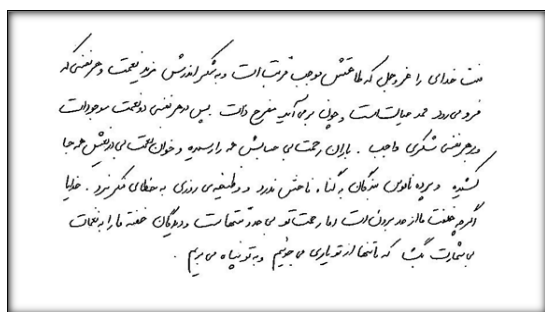 منت خدای را عزوجل که طاعتش موجب قربت است و به شکر اندرش مزید نعمت و هر نفسی که
فرو می‌رود ممد حیات است و چون برمی‌آید مفرح ذات پس در هر نفسی دو نعمت موجود است
و در هر نفسی شکری واجب . باران رحمت بی حسابش همه را رسیده و خوان نعمت بی‌دریغش همه جا
کشیده و پرده ناموس بندگان به گناه فاحش ندرد و وظیفه‌ی روزی به خطای منکر نبرد . خدایا
اگرچه غفلت ما از حد برون است اما رحمت تو بی حد و منتهاست و دیدگان خفته ما را به نعمات
بی‌شمارت بگشا که ما تنها از تو یاری می‌جوئیم و به تو پناه می‌بریم .